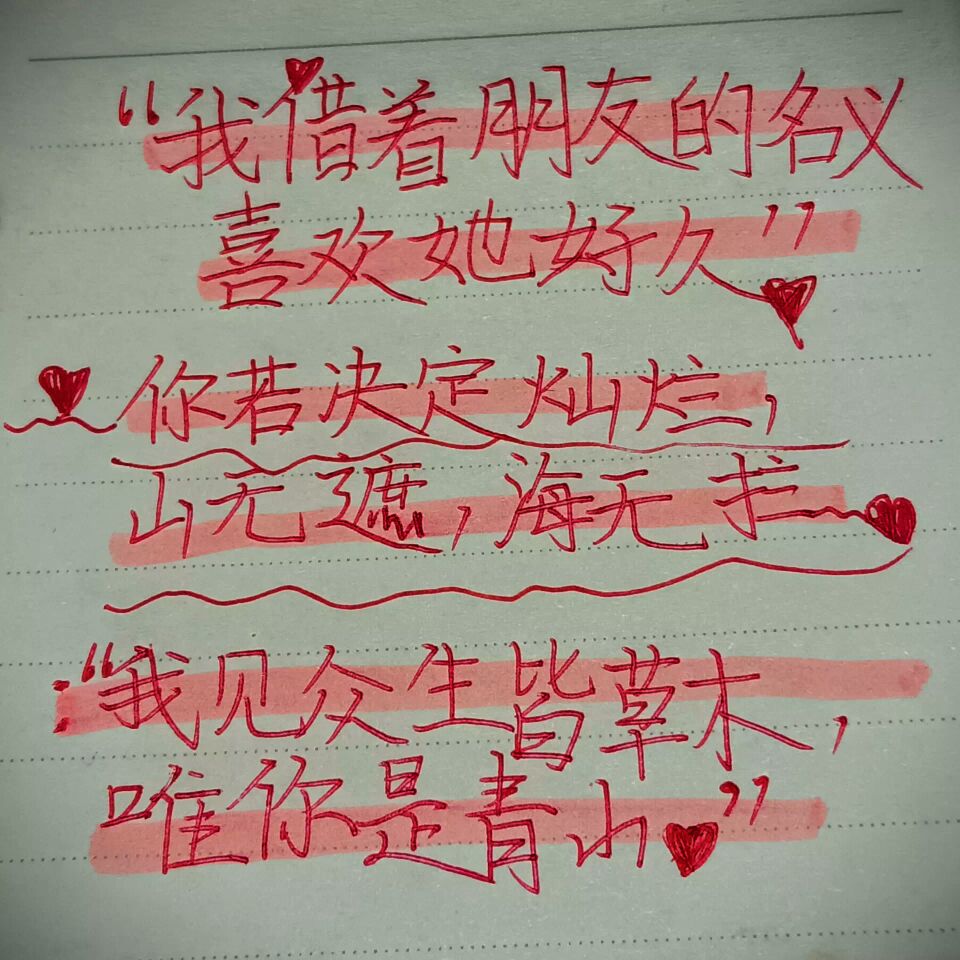 “我借着朋友的名义
喜欢她好久”
你若决定灿烂，
山无遮，海无拦
“我见众生皆草木，
唯你是青山”